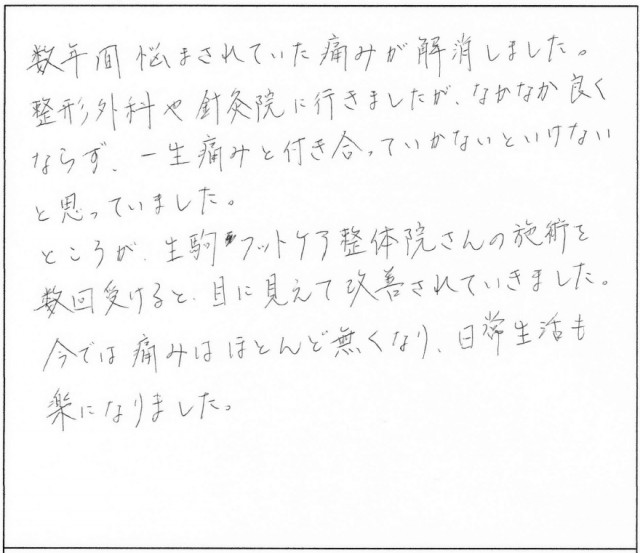 数年間悩まされていた痛みが解消しました。
整形外科や針灸院に行きましたが、なかなか良く
ならず、一生痛みと付き合っていかないといけない
と思っていました。
ところが、生駒フットケア整体院さんの施術を
数回受けると、目に見えて改善されていきました。
今では痛みはほとんど無くなり、日常生活も
楽になりました。